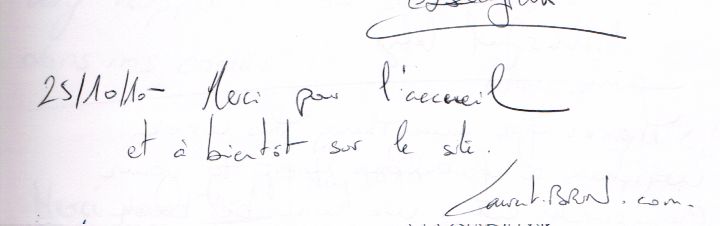 25/10/10 - Merci pour l'accueil
et à bientôt sur le site.
Laurent.BRUN.com.